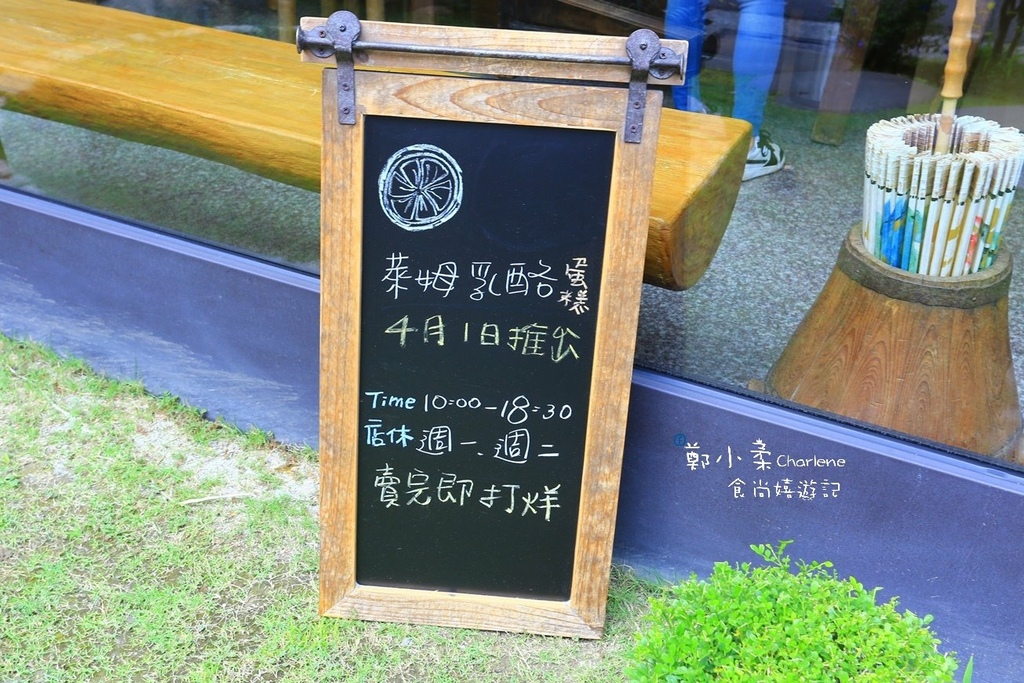 萊姆乳酪蛋糕
4月1日推出
Time 10:00-18:30
店休週一、週二
賣完即打烊
鄭小柔Charlene
食尚嬉遊記